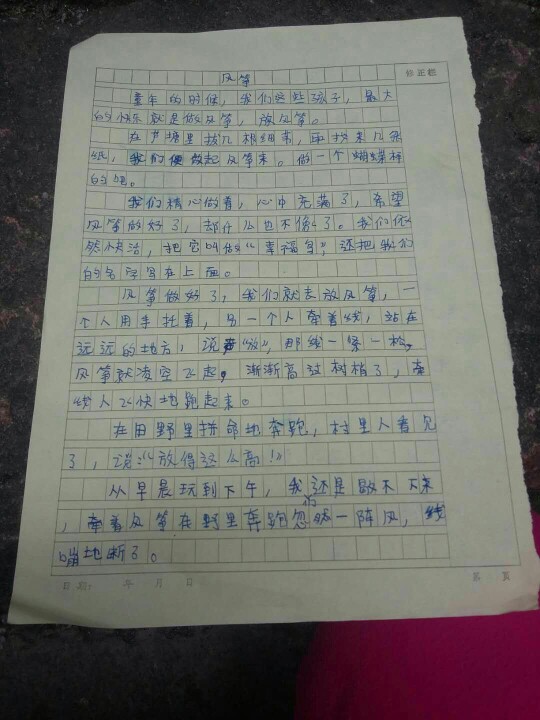 风筝
修正栏
童年的时候，我们这些孩子，最大
的快乐就是做风筝，放风筝。
在芦塘里拔几根细苇，再找来几条
纸，我们便做起风筝来。做一个蝴蝶样
的吧。
我们精心做着，心中充满了，希望
风筝做好了，却什么也不像了。我们依
然快活，把它叫做“幸福鸟”，还把我们
的名字写在上面。
风筝做好了，我们就去放风筝，一
个人用手托着，另一个人牵着线，站在
远远的地方，说“放”，那线一紧一松，
风筝就凌空飞起，渐渐高过树梢了，牵
线人飞快地跑起来。
在田野里拼命地奔跑，村里人看见
了，说：“放得这么高！”
从早晨玩到下午，我们还是歇不下来
，牵着风筝在野里奔跑忽然一阵风，线
嘣地断了。
日期： 年 月 日
第 页